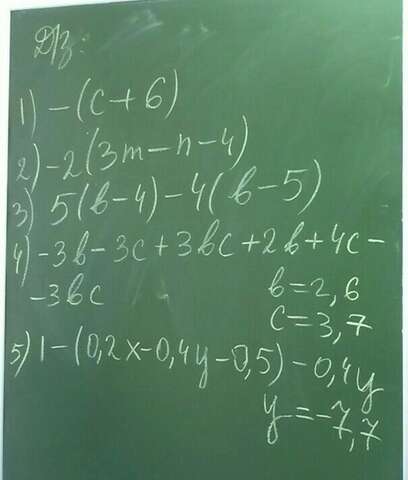 Д/з:
1) -(c+6)
2) -2(3m-n-4)
3) 5(b-4)-4(b-5)
4) -3b-3c+3bc+2b+4c-
-3bc b=2,6
c=3,7
5) 1-(0,2x-0,4y-0,5)-0,4y
y=-7,7